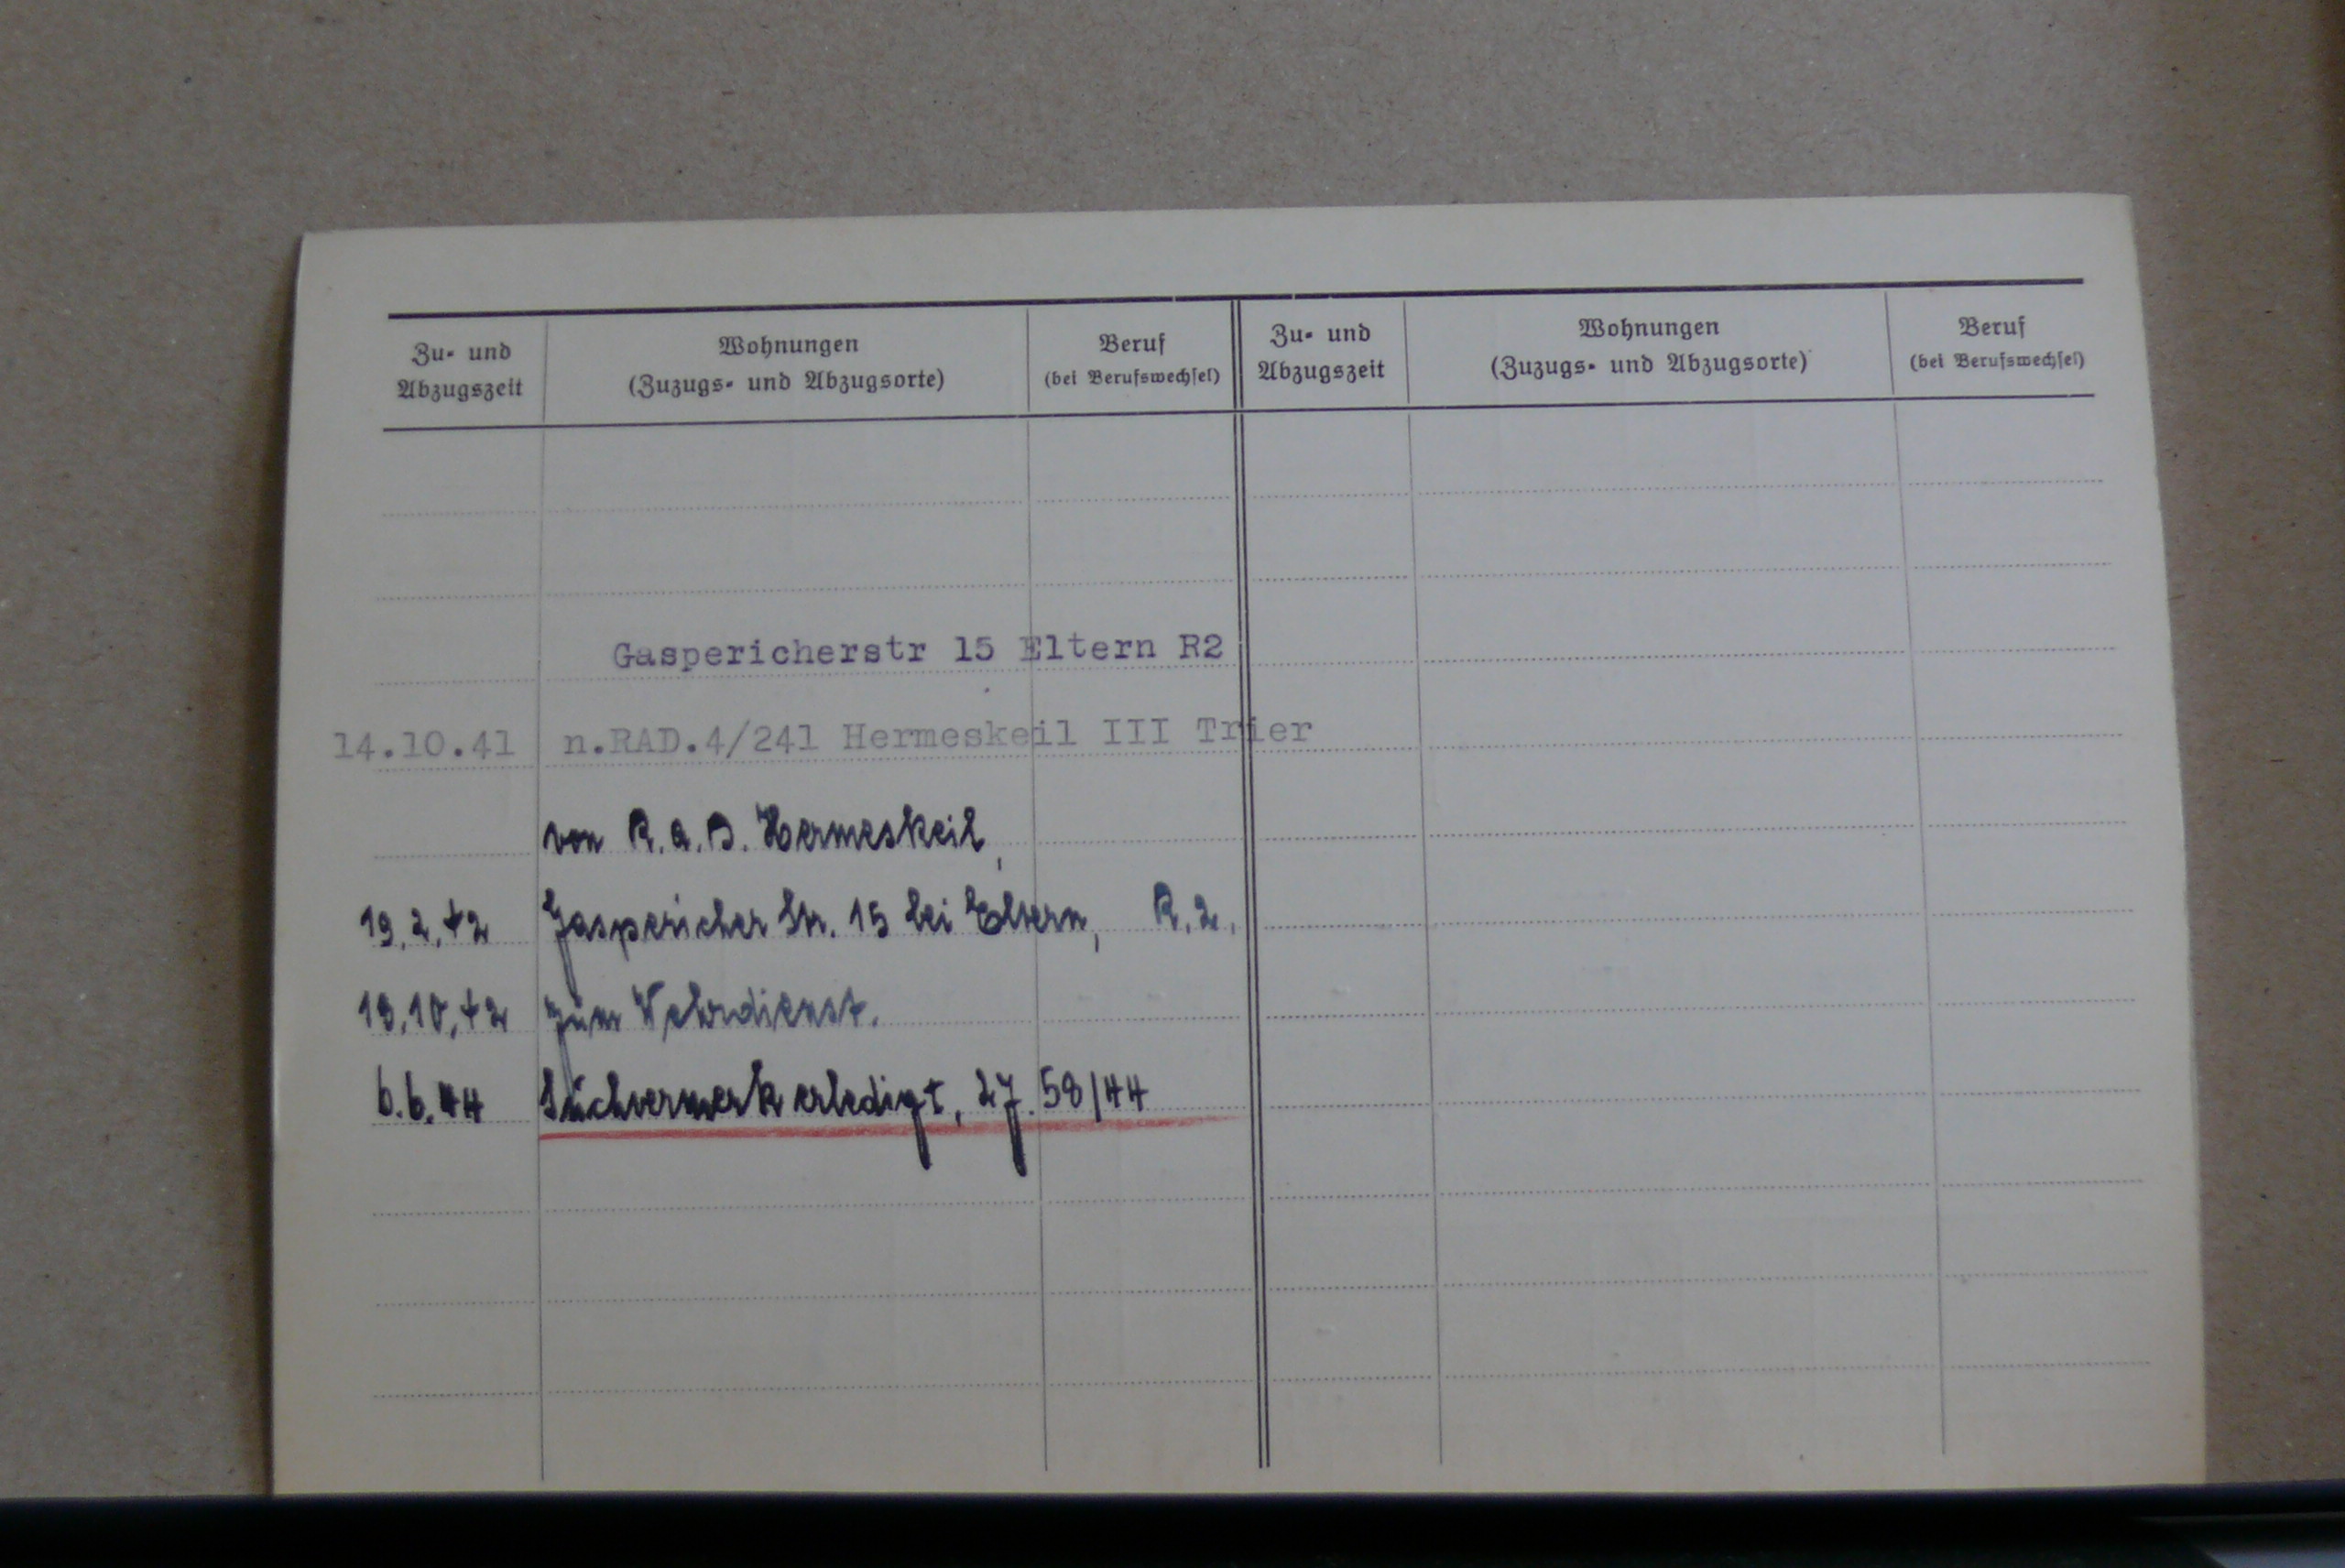 Zu- und Abzugszeit
Wohnungen (Zuzugs- und Abzugsorte)
Beruf (bei Berufswechsel)
Zu- und Abzugszeit
Wohnungen (Zuzugs- und Abzugsorte)
Beruf (bei Berufswechsel)
Gaspericherstr 15 Eltern R2
14.10.41 n.RAD.4/241 Hermeskeil III Trier
von R.a.D. Hermeskeil,
19.2.42 Gaspericher Str. 15 bei Eltern, R.2.
19.10.42 zum Wehrdienst.
6.6.44 Suchvermerk erledigt, 58/44